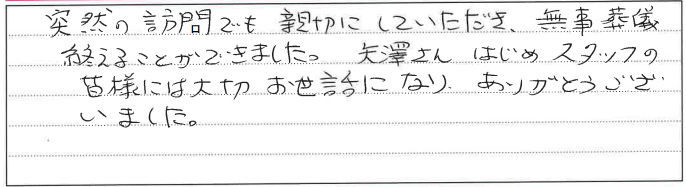 突然の訪問でも親切にしていただき、無事葬儀
終えることができました。矢澤さんはじめスタッフの
皆様には大切お世話になり、ありがとうござ
いました。